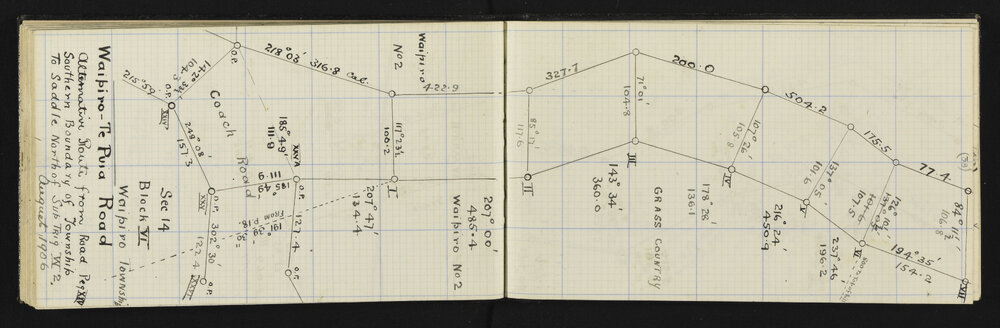 Waipiro-Te Puia Road
Alternative Route from Road Peg XXIV
Southern Boundary of Township
To Saddle North of Sub Trig W2.
August 1906
Sec 14
Block VI
Waipiro Township
Coach Road
215° 59'
O.P.
XXIV
O.P.
218° 03' 316.8 Cal.
249° 08'
157.3
O.P.
XXV
302° 30'
122.4
O.P.
XXVI
185° 49'
111.9
XXVA
111.9
185° 49'
127.4
O.P.
From P. 18.
Waipiro
No 2
422.9
117° 23½'
100.2
I
207° 47'
134.4
207° 00'
485.4
Waipiro No 2
85° 17'
117.6
II
327.7
71° 01'
104.8
III
143° 34'
360.0
GRASS COUNTRY
200.0
107° 26'
105.8
IV
178° 28'
136.1
504.2
137° 05'
101.6
V
216° 24'
450.9
175.5
107.5
VI
237° 46'
196.2
77.4
84° 11½'
106.8
194° 35'
154.2
VII